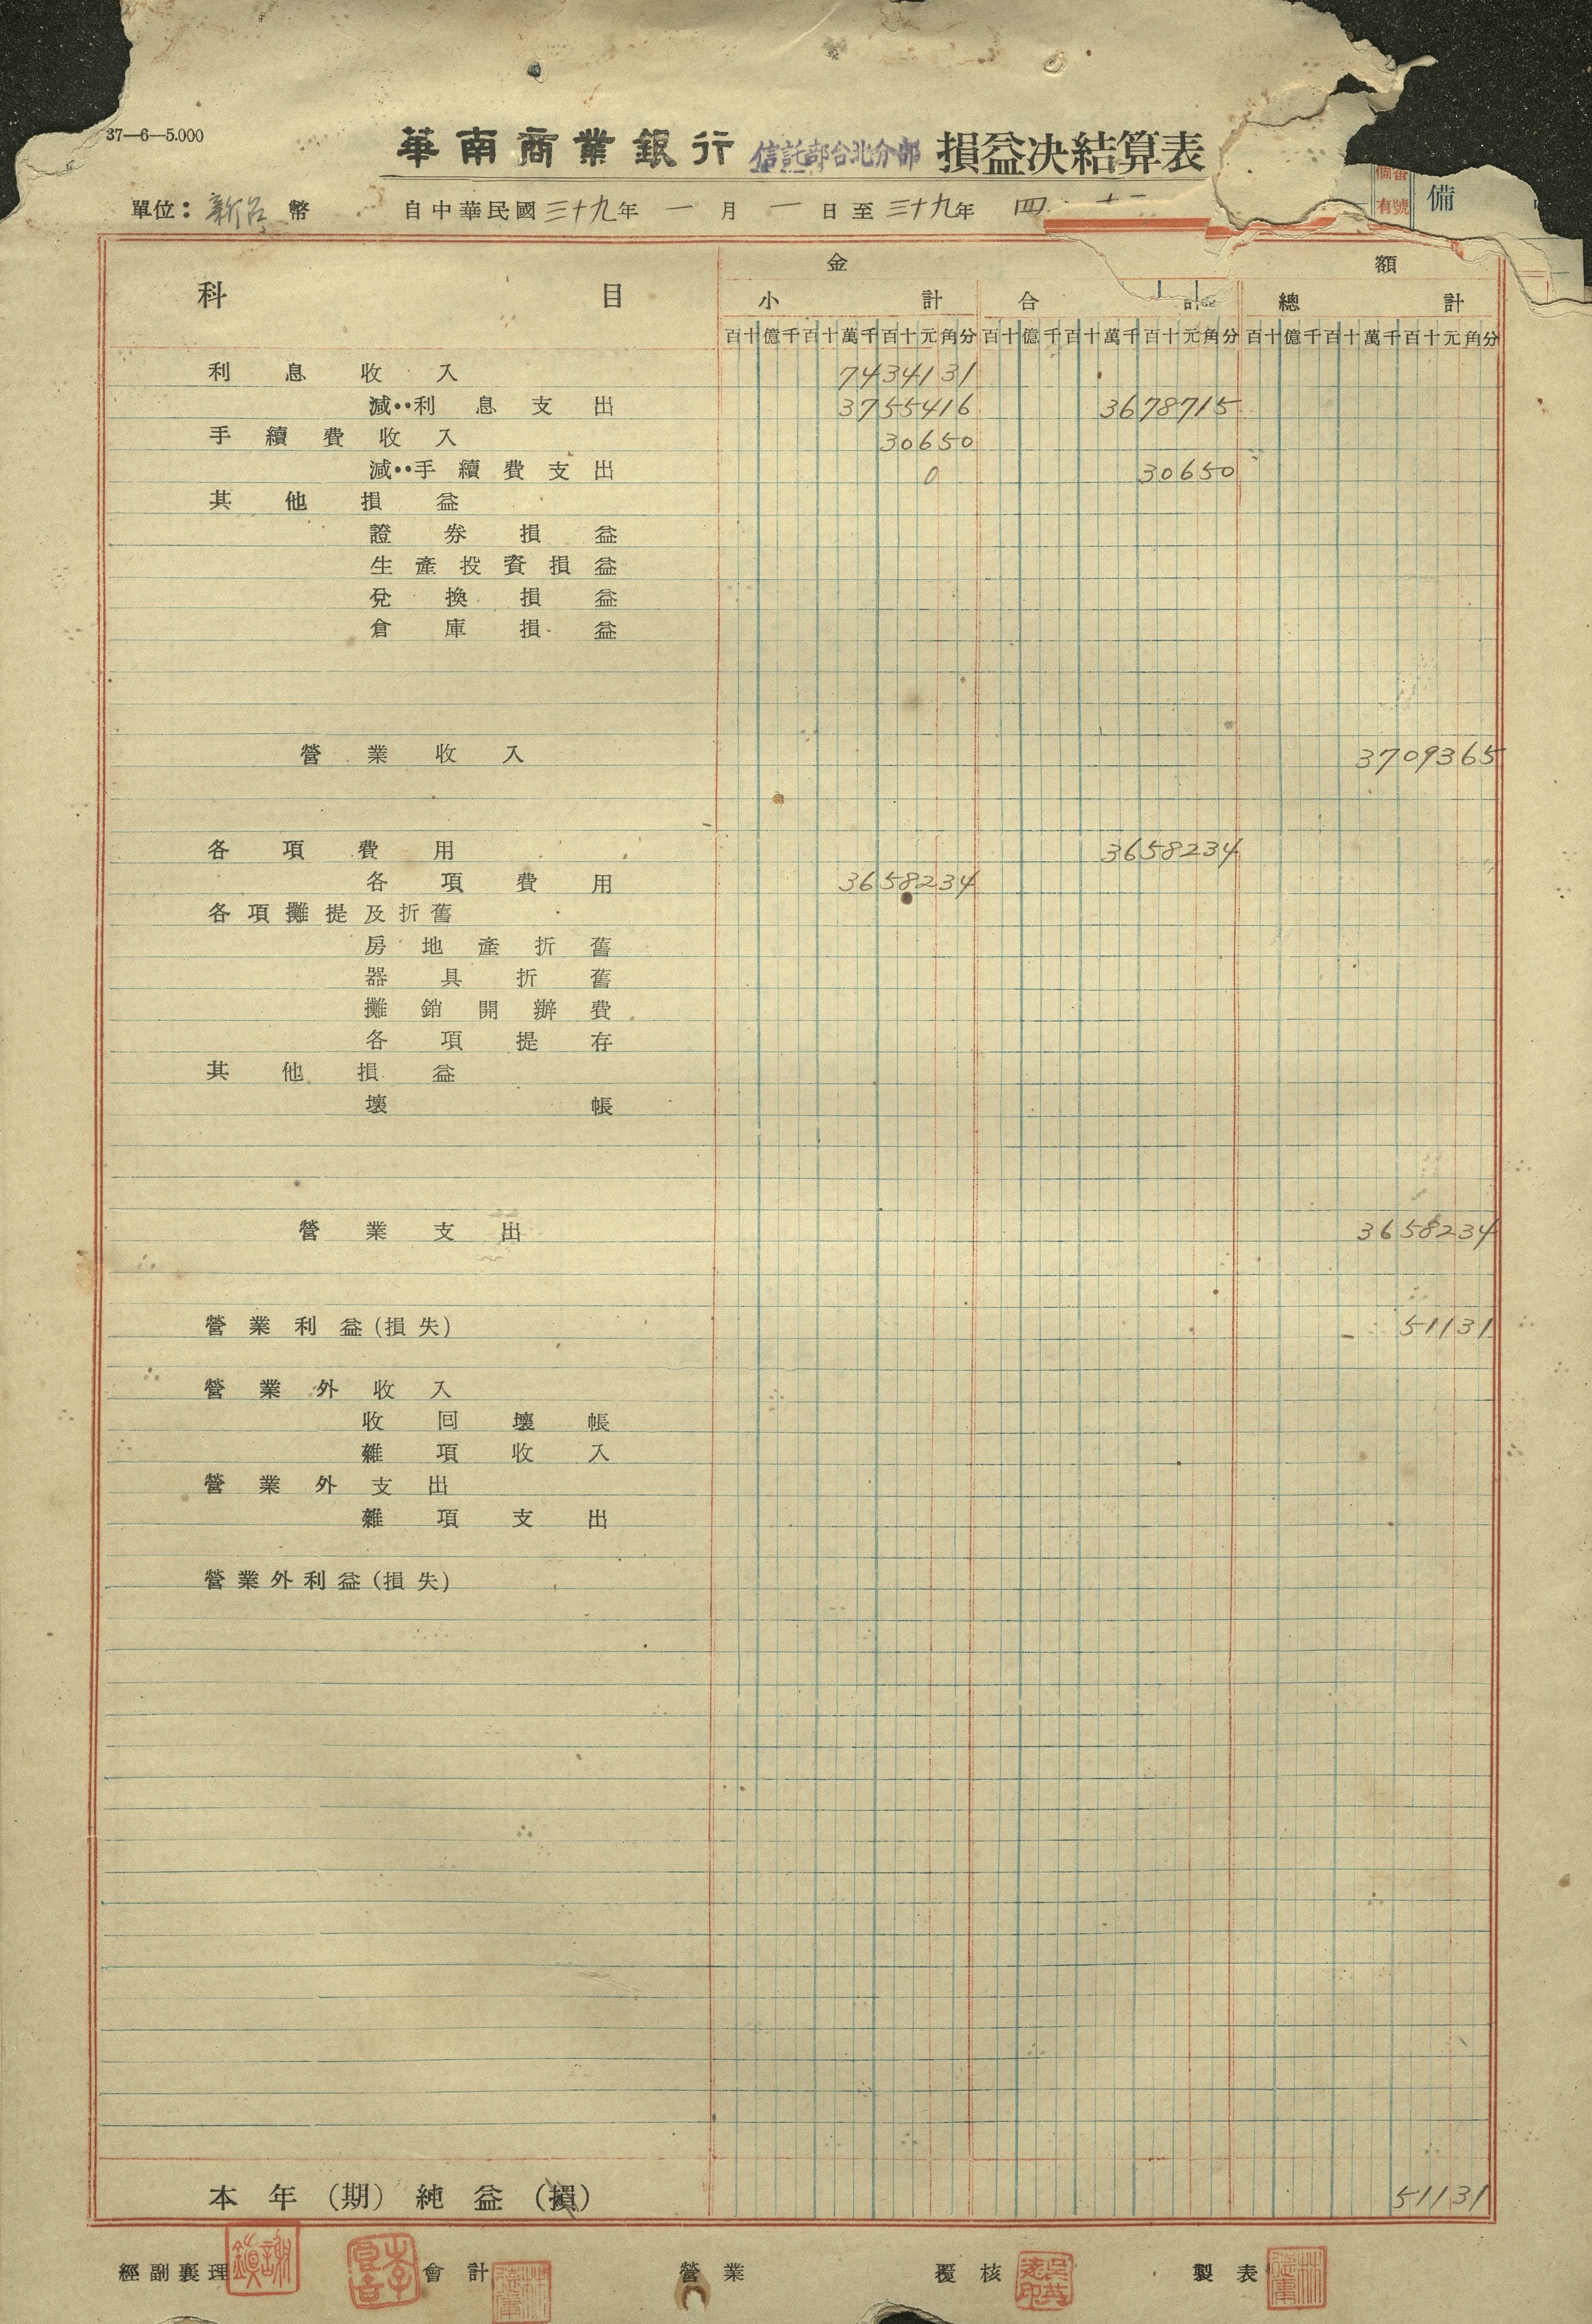 37—6—5.000
華南商業銀行 信託部台北分部 損益決結算表
單位：新台幣 自中華民國三十九年一月一日至三十九年四
個番
有號
備
科目 金額
小計 合計 總計
百十億千百十萬千百十元角分 百十億千百十萬千百十元角分 百十億千百十萬千百十元角分
利息收入 7434131
減‥利息支出 3755416 3678715
手續費收入 30650
減‥手續費支出 0 30650
其他損益
證券損益
生產投資損益
兌換損益
倉庫損益
營業收入 3709365
各項費用 3658234
各項費用 3658234
各項攤提及折舊
房地產折舊
器具折舊
攤銷開辦費
各項提存
其他損益
壞帳
營業支出 3658234
營業利益(損失) 51131
營業外收入
收回壞帳
雜項收入
營業外支出
雜項支出
營業外利益(損失)
本年(期)純益(損) 51131
經副襄理 會計 營業 覆核 製表